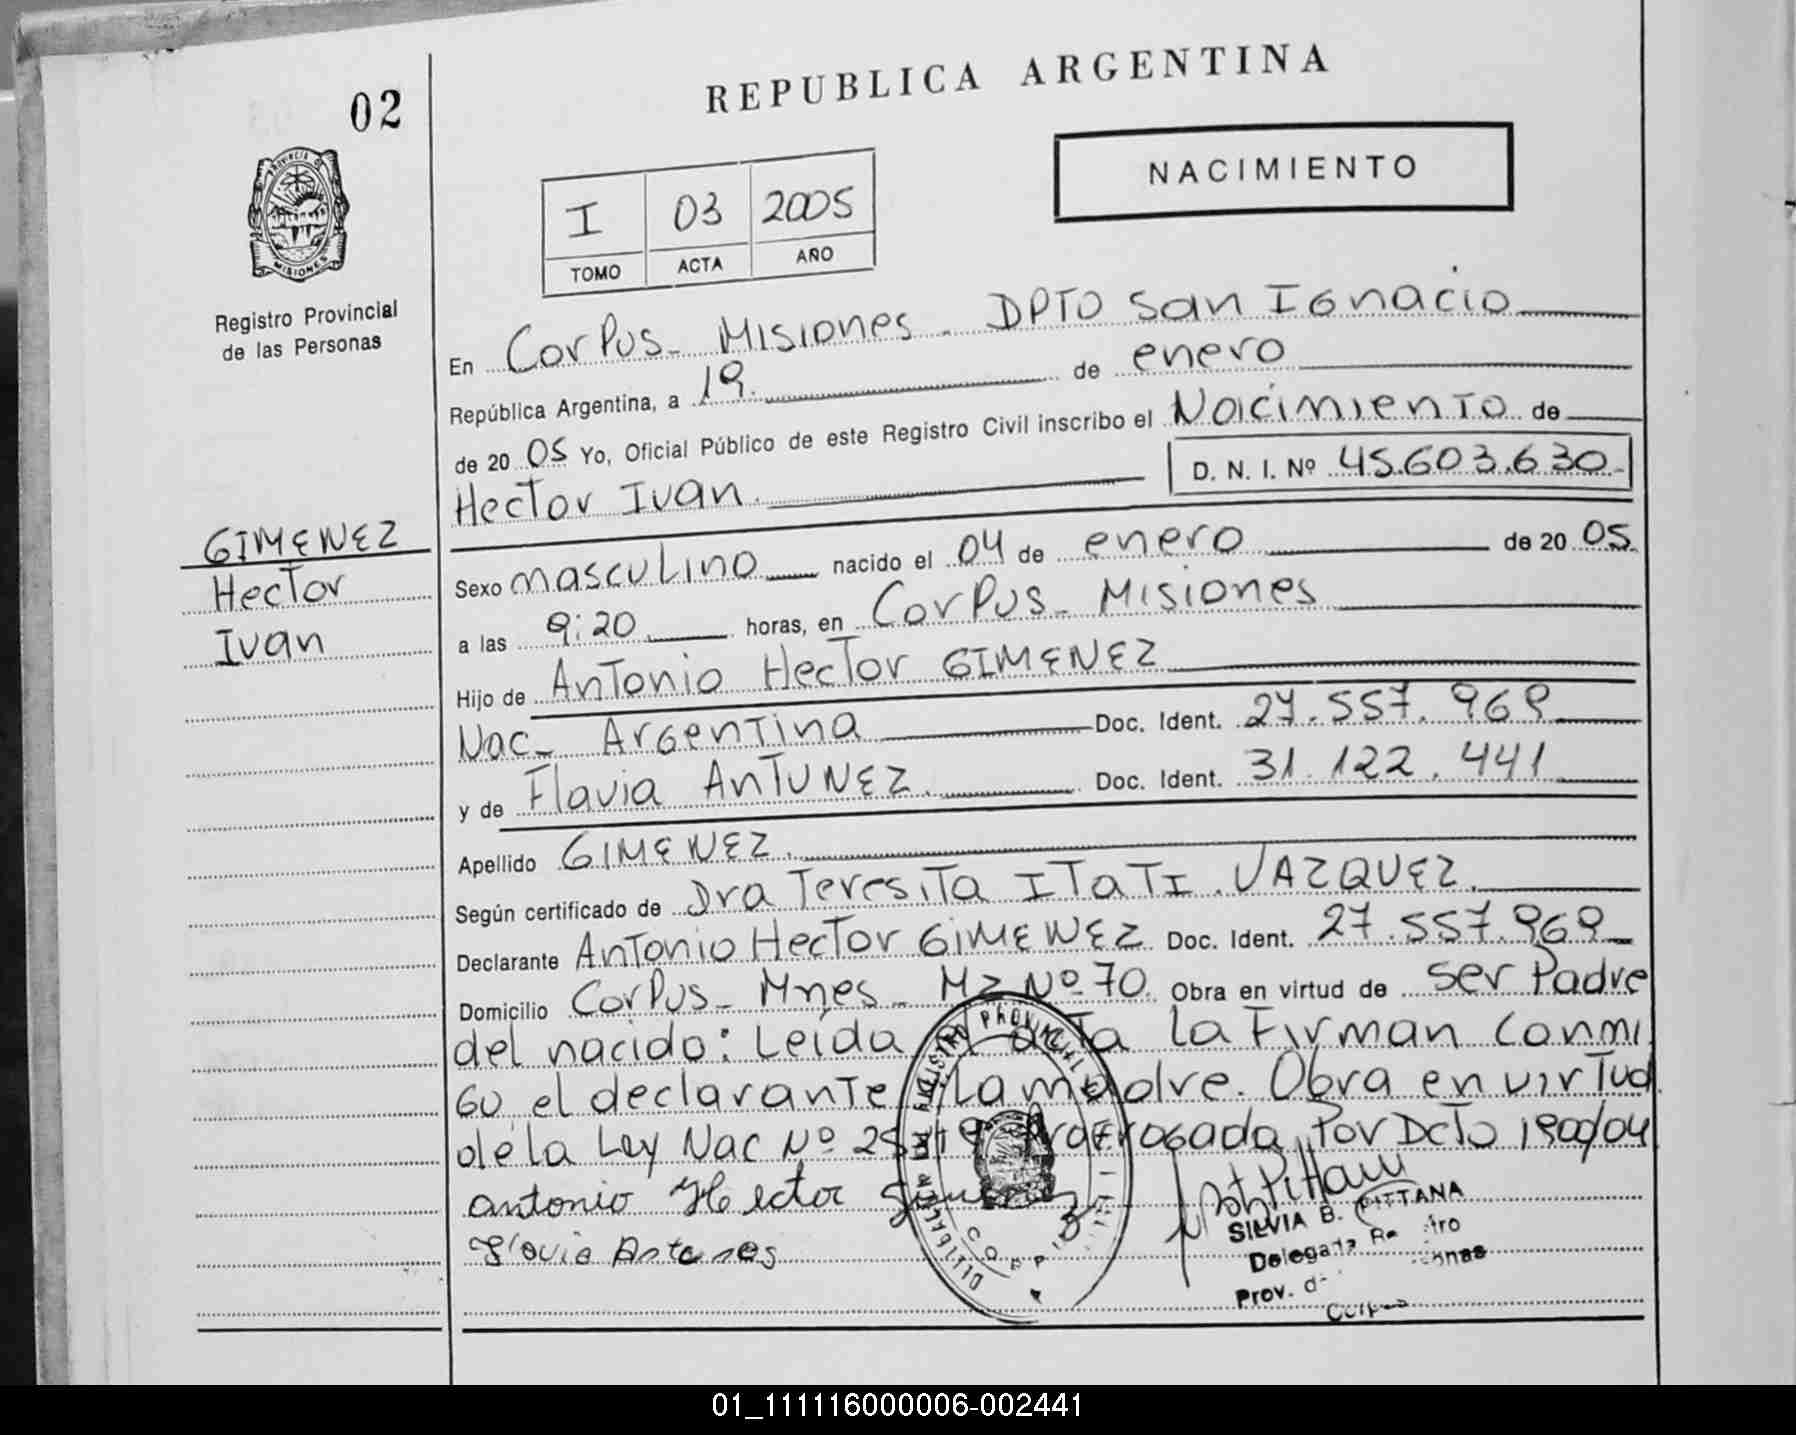 REPUBLICA ARGENTINA
02
NACIMIENTO
I 03 2005
TOMO ACTA AÑO
PROVINCIA DE MISIONES
Registro Provincial
de las Personas
En Corpus - Misiones - DPTO San Ignacio
República Argentina, a 19 de enero
de 20 05 Yo, Oficial Público de este Registro Civil inscribo el Nacimiento de
D. N. I. Nº 45.603.630
Hector Ivan
GIMENEZ
Hector
Ivan
Sexo masculino nacido el 04 de enero de 20 05
a las 9:20 horas, en Corpus - Misiones
Hijo de Antonio Hector GIMENEZ
Nac - Argentina Doc. Ident. 27.557.969
y de Flavia ANTUNEZ. Doc. Ident. 31.122.441
Apellido GIMENEZ.
Según certificado de Dra Teresita ITATI. VAZQUEZ.
Declarante Antonio Hector GIMENEZ Doc. Ident. 27.557.969
Domicilio Corpus - Mnes - Mz Nº 70. Obra en virtud de ser Padre
del nacido: Leida acta la Firman conmi
go el declarante La madre. Obra en virtud
de la Ley Nac Nº Prorrogada Por Dcto 1900/04
Antonio Hector Gimenez
Flavia Antunes
SILVIA B. PITTANA
Delegada
Prov. d
REGISTRO PROVINCIAL
CORPUS
01_111116000006-002441